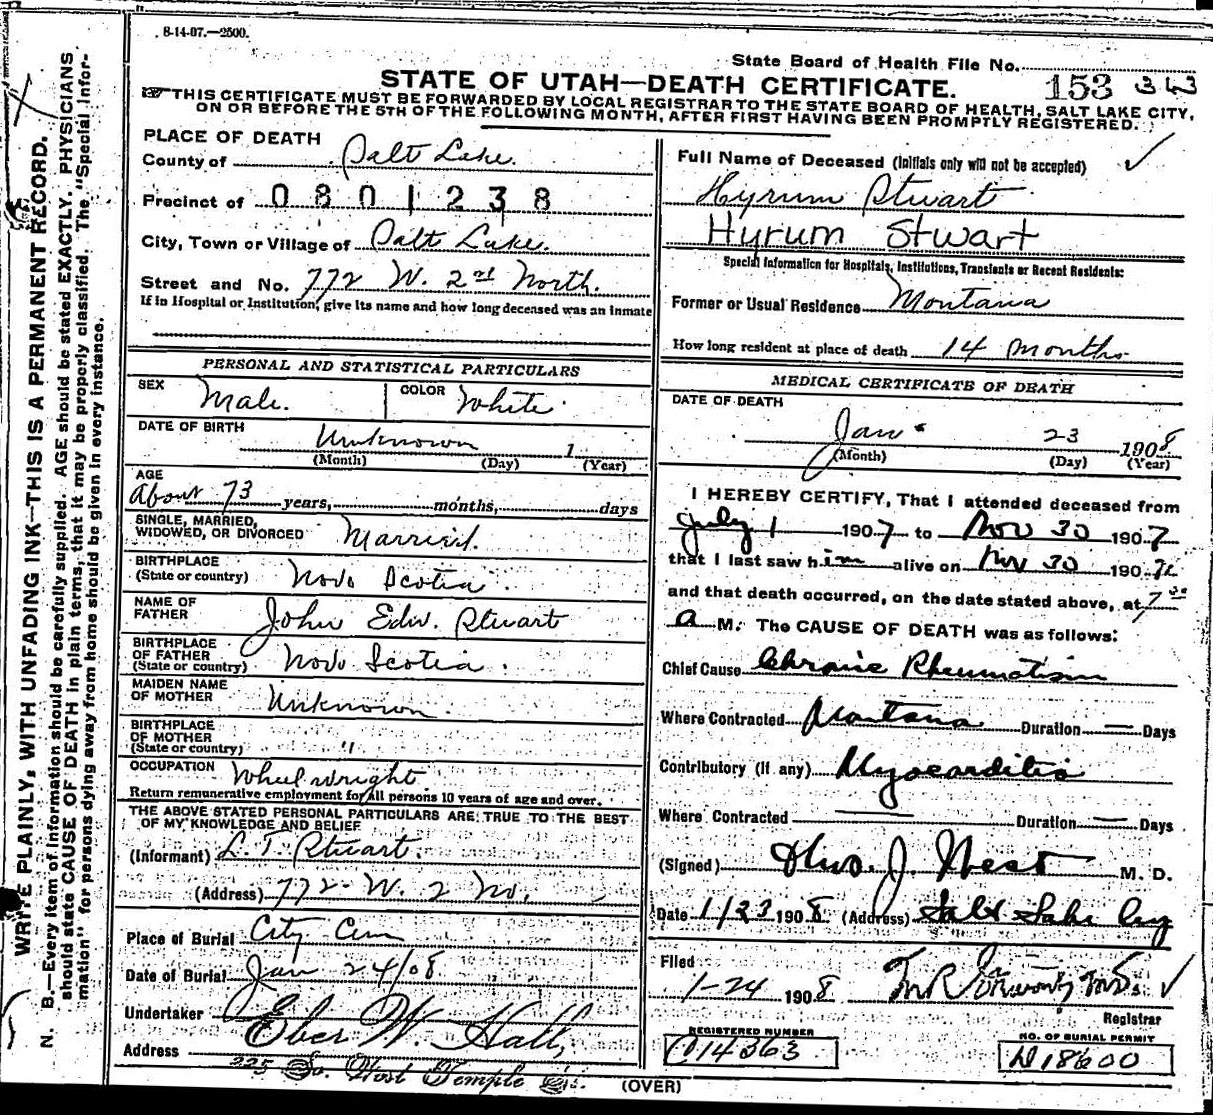 8-14-07.—2500.
State Board of Health File No. 153 343
STATE OF UTAH—DEATH CERTIFICATE.
THIS CERTIFICATE MUST BE FORWARDED BY LOCAL REGISTRAR TO THE STATE BOARD OF HEALTH, SALT LAKE CITY,
ON OR BEFORE THE 5TH OF THE FOLLOWING MONTH, AFTER FIRST HAVING BEEN PROMPTLY REGISTERED.
WRITE PLAINLY, WITH UNFADING INK—THIS IS A PERMANENT RECORD.
N. B.—Every item of information should be carefully supplied. AGE should be stated EXACTLY. PHYSICIANS
should state CAUSE OF DEATH in plain terms, that it may be properly classified. The "Special Infor-
mation" for persons dying away from home should be given in every instance.
PLACE OF DEATH
County of Salt Lake.
Precinct of 0801238
City, Town or Village of Salt Lake.
Street and No. 772 W. 2nd North.
If in Hospital or Institution, give its name and how long deceased was an inmate
PERSONAL AND STATISTICAL PARTICULARS
SEX Male. COLOR White
DATE OF BIRTH Unknown 1
(Month) (Day) (Year)
AGE
About 73 years, months, days
SINGLE, MARRIED,
WIDOWED, OR DIVORCED Married.
BIRTHPLACE
(State or country) Novo Scotia
NAME OF
FATHER John Edw. Stuart
BIRTHPLACE
OF FATHER
(State or country) Novo Scotia.
MAIDEN NAME
OF MOTHER Unknown.
BIRTHPLACE
OF MOTHER
(State or country) "
OCCUPATION Wheelwright
Return remunerative employment for all persons 10 years of age and over.
THE ABOVE STATED PERSONAL PARTICULARS ARE TRUE TO THE BEST
OF MY KNOWLEDGE AND BELIEF
(Informant) L. T. Stuart.
(Address) 772 W. 2 No.
Place of Burial City Cem
Date of Burial Jan 24/08
Undertaker Eber W. Hall,
Address 225 So. West Temple St.
Full Name of Deceased (Initials only will not be accepted)
Hyrum Stuart
Hyrum Stwart
Special Information for Hospitals, Institutions, Transients or Recent Residents:
Former or Usual Residence Montana
How long resident at place of death 14 months
MEDICAL CERTIFICATE OF DEATH
DATE OF DEATH
Jan 23 1908
(Month) (Day) (Year)
I HEREBY CERTIFY, That I attended deceased from
July 1 1907 to Nov 30 1907
that I last saw him alive on Nov 30 1907
and that death occurred, on the date stated above, at 7 30
a M. The CAUSE OF DEATH was as follows:
Chief Cause Chronic Rheumatism
Where Contracted Montana Duration — Days
Contributory (if any) Myocarditis
Where Contracted — Duration — Days
(Signed) J. West M. D.
Date 1/23 1908. (Address) Salt Lake City
Filed
1-24 1908
Registrar
REGISTERED NUMBER
014363
NO. OF BURIAL PERMIT
D18600
(OVER)